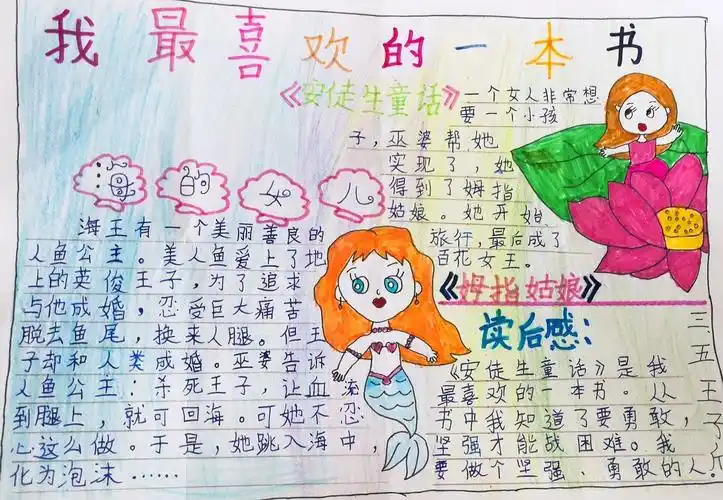 我最喜欢的一本书
《安徒生童话》
一个女人非常想
要一个小孩
子，巫婆帮她
实现了，她
得到了姆指
姑娘。她开始
旅行，最后成了
百花女王。
《姆指姑娘》
海的女儿
海王有一个美丽善良的
人鱼公主。美人鱼爱上了地
上的英俊王子，为了追求
与他成婚，忍受巨大痛苦
脱去鱼尾，换来人腿。但王
子却和人类成婚。巫婆告诉
人鱼公主：杀死王子，让血流
到腿上，就可回海。可她不忍
心这么做。于是，她跳入海中，
化为泡沫……
读后感：
《安徒生童话》是我
最喜欢的一本书。从
书中我知道了要勇敢，
坚强才能战困难。我
要做个坚强、勇敢的人！
三五王